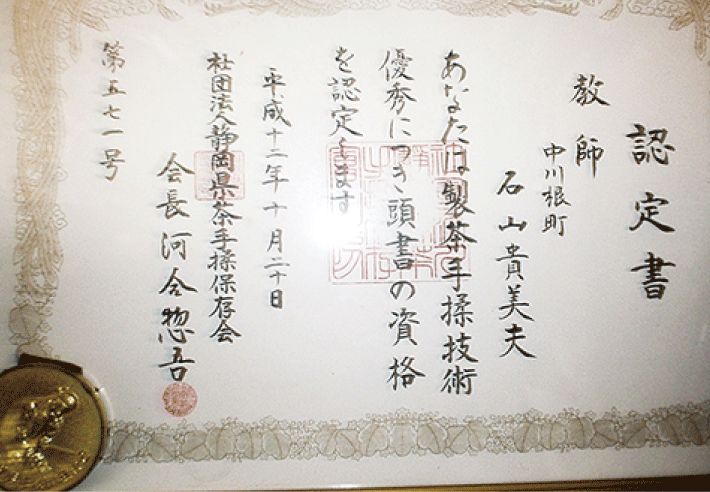 認定書
教師
中川根町
石山貴美夫
あなたは製茶手揉技術
優秀につき頭書の資格
を認定します
平成十二年十月二十日
社団法人静岡県茶手揉保存会
会長河合惣吾
第五七一号